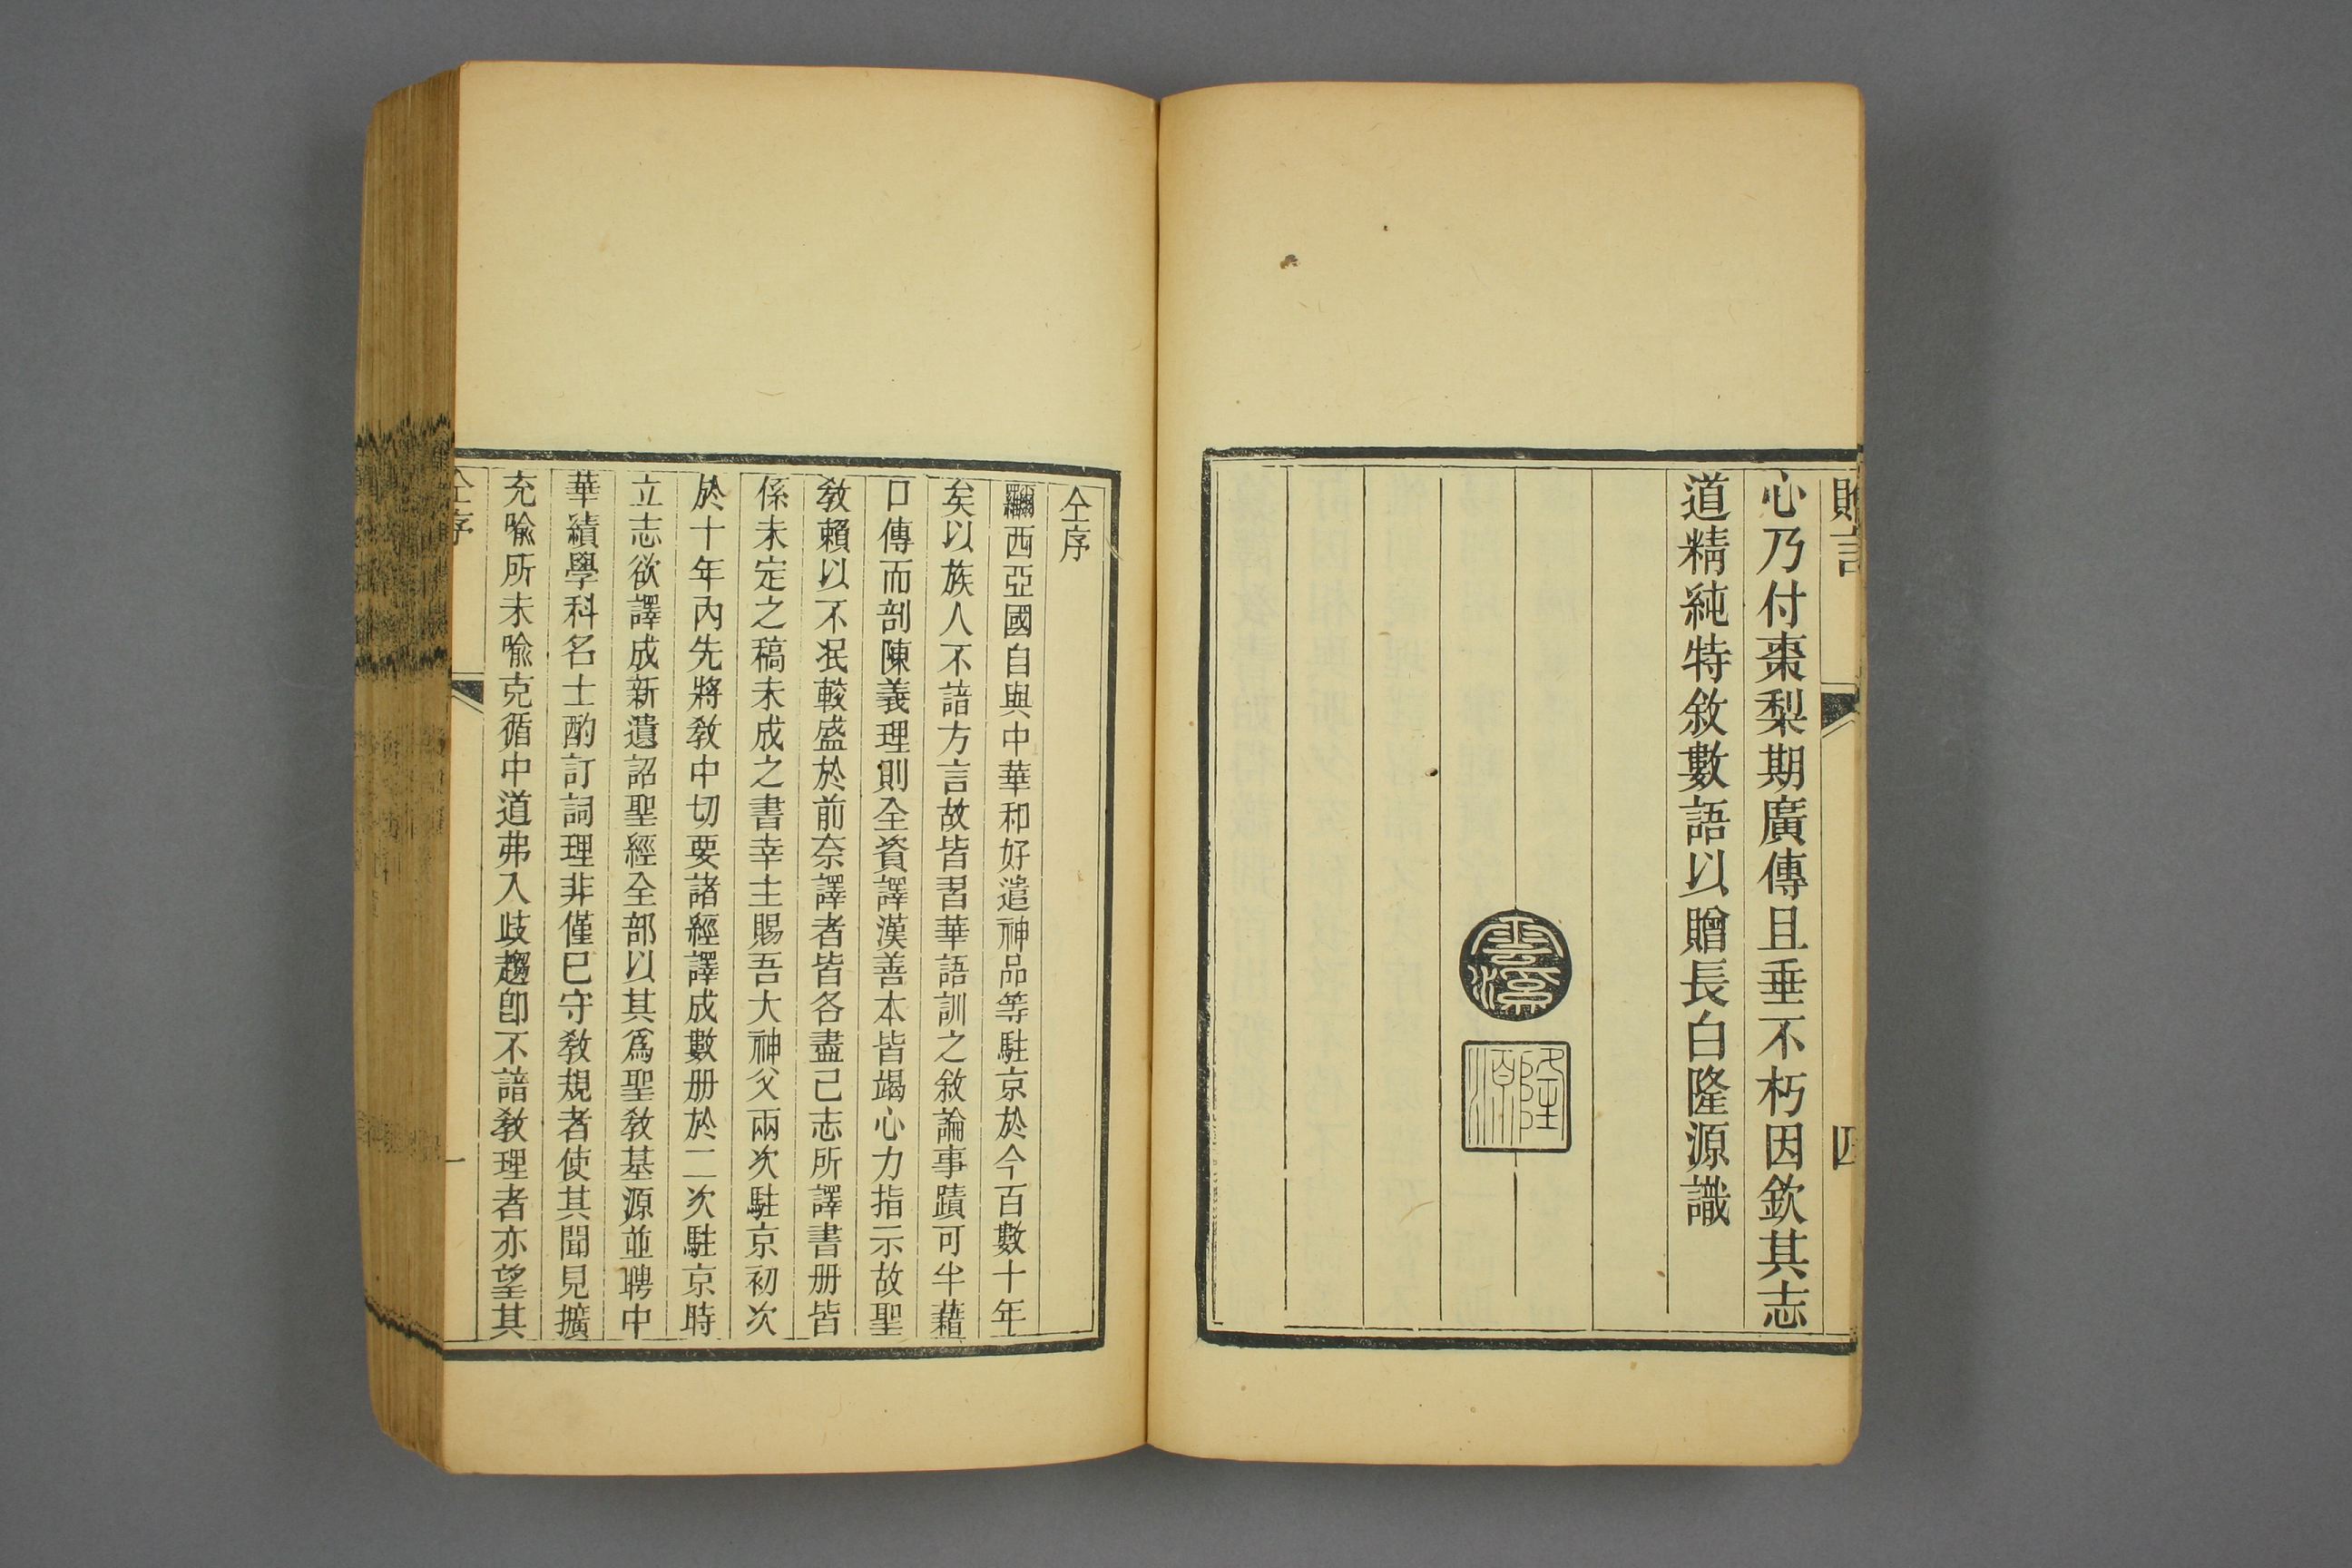 贈言
四
心乃付棗梨期廣傳且垂不朽因欽其志
道精純特敘數語以贈長白隆源識
雲溪
隆源
仝序
西亞國自與中華和好遣神品等駐京於今百數十年
矣以族人不諳方言故皆習華語訓之敘論事蹟可半藉
口傳而剖陳義理則全資譯漢善本皆竭心力指示故聖
教賴以不泯較盛於前奈譯者皆各盡己志所譯書册皆
係未定之稿未成之書幸主賜吾大神父兩次駐京初次
於十年內先將教中切要諸經譯成數册於二次駐京時
立志欲譯成新遺詔聖經全部以其爲聖教基源並聘中
華績學科名士酌訂詞理非僅已守教規者使其聞見擴
充喻所未喻克循中道弗入歧趨卽不諳教理者亦望其
仝序
一